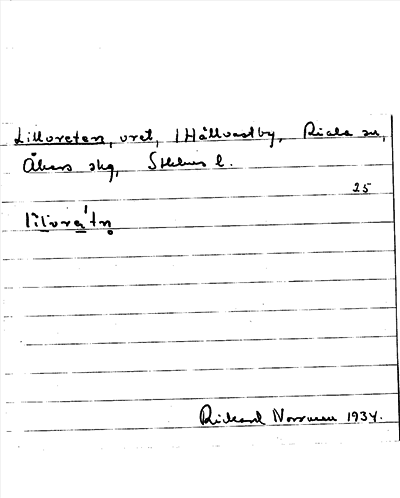 Lilloreten, vret, i Hållvastby, Riala sn,
Åkers skg, Sthlms l.
25
lìl̄ovre̱'tn̥
Rickard Norrman 1934.